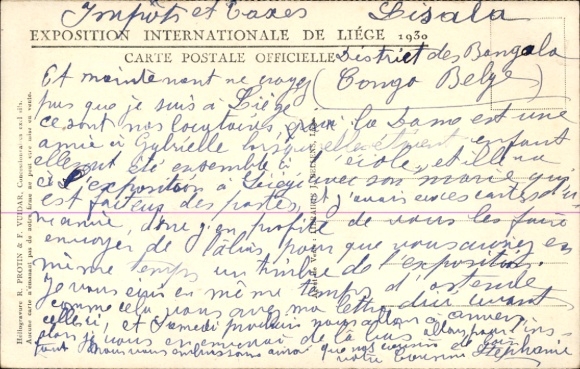 Impôts et Taxes Lisala
EXPOSITION INTERNATIONALE DE LIÉGE 1930
CARTE POSTALE OFFICIELLE
District des Bangala
(Congo Belge)
Et maintenant ne croyez
pas que je suis à Liége
ce sont nos locataires, la Dame est une
amie à Gabrielle lorsqu'elles étaient enfant
elles ont été ensemble à l'école, et elle va
à l'exposition à Liége avec son marie qui
est facteur des postes, et j'avais ces cartes d'une
année, donc j'en profite de vous les faire
envoyer de là bas pour que vous aurez en
même temps un timbre de l'exposition.
Je vous écris en même temps d'ostende
comme cela vous avez ma lettre suivant
celle ci, et Samedi prochain nous allons à anvers
alors je vous enverrai de là bas
tout nous vous embrassons ainsi que nos cousins
votre Cousine Stéphanie
Héliogravure R. PROTIN & F. VUIDAR, Concessionnaires
Aucune carte n'émanant pas de notre firme ne peut être mise en vente.